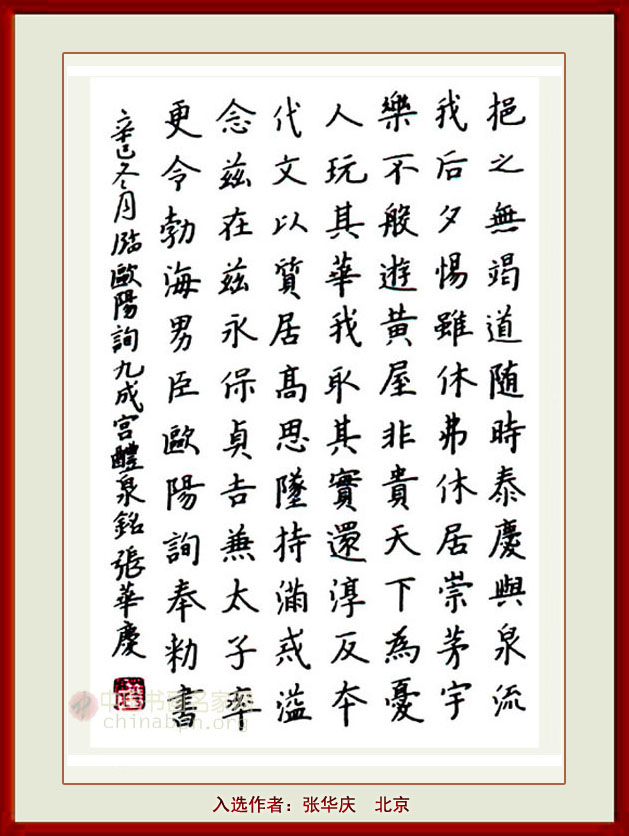 挹之無竭道随時泰慶與泉流
我后夕惕雖休弗休居崇茅宇
樂不般遊黃屋非貴天下為憂
人玩其華我取其實還淳反本
代文以質居高思墜持滿戒溢
念茲在茲永保貞吉兼太子率
更令勃海男臣歐陽詢奉勑書
辛巳冬月臨歐陽詢九成宮醴泉銘張華慶
中国书画名家网
chinabph.org
入选作者：张华庆 北京